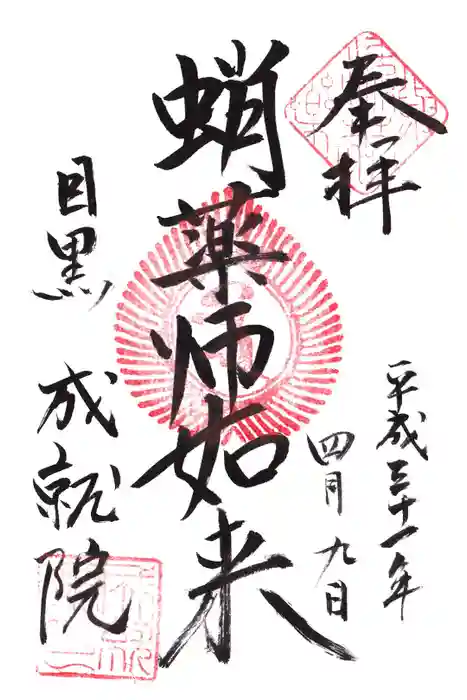 奉拝
平成三十一年
四月九日
蛸薬師如来
目黒 成就院